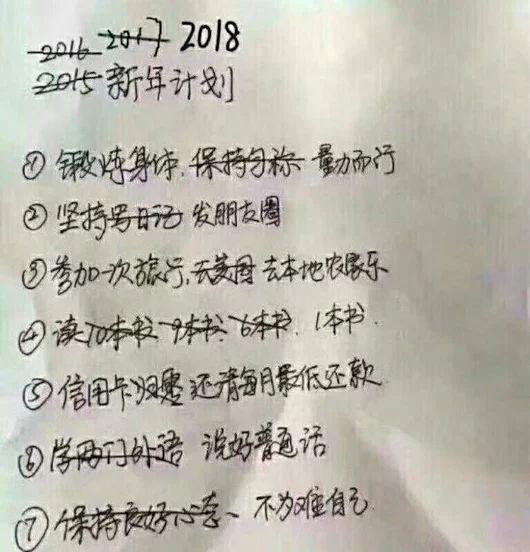 2016 2017 2018
2015 新年计划
① 锻炼身体, 保持匀称 量力而行
② 坚持写日记 发朋友圈
③ 参加一次旅行, 去美国 去本地农家乐
④ 读10本书 9本书 6本书 1本书.
⑤ 信用卡归零 还清每月最低还款
⑥ 学两门外语 说好普通话
⑦ 保持良好心态、不为难自己